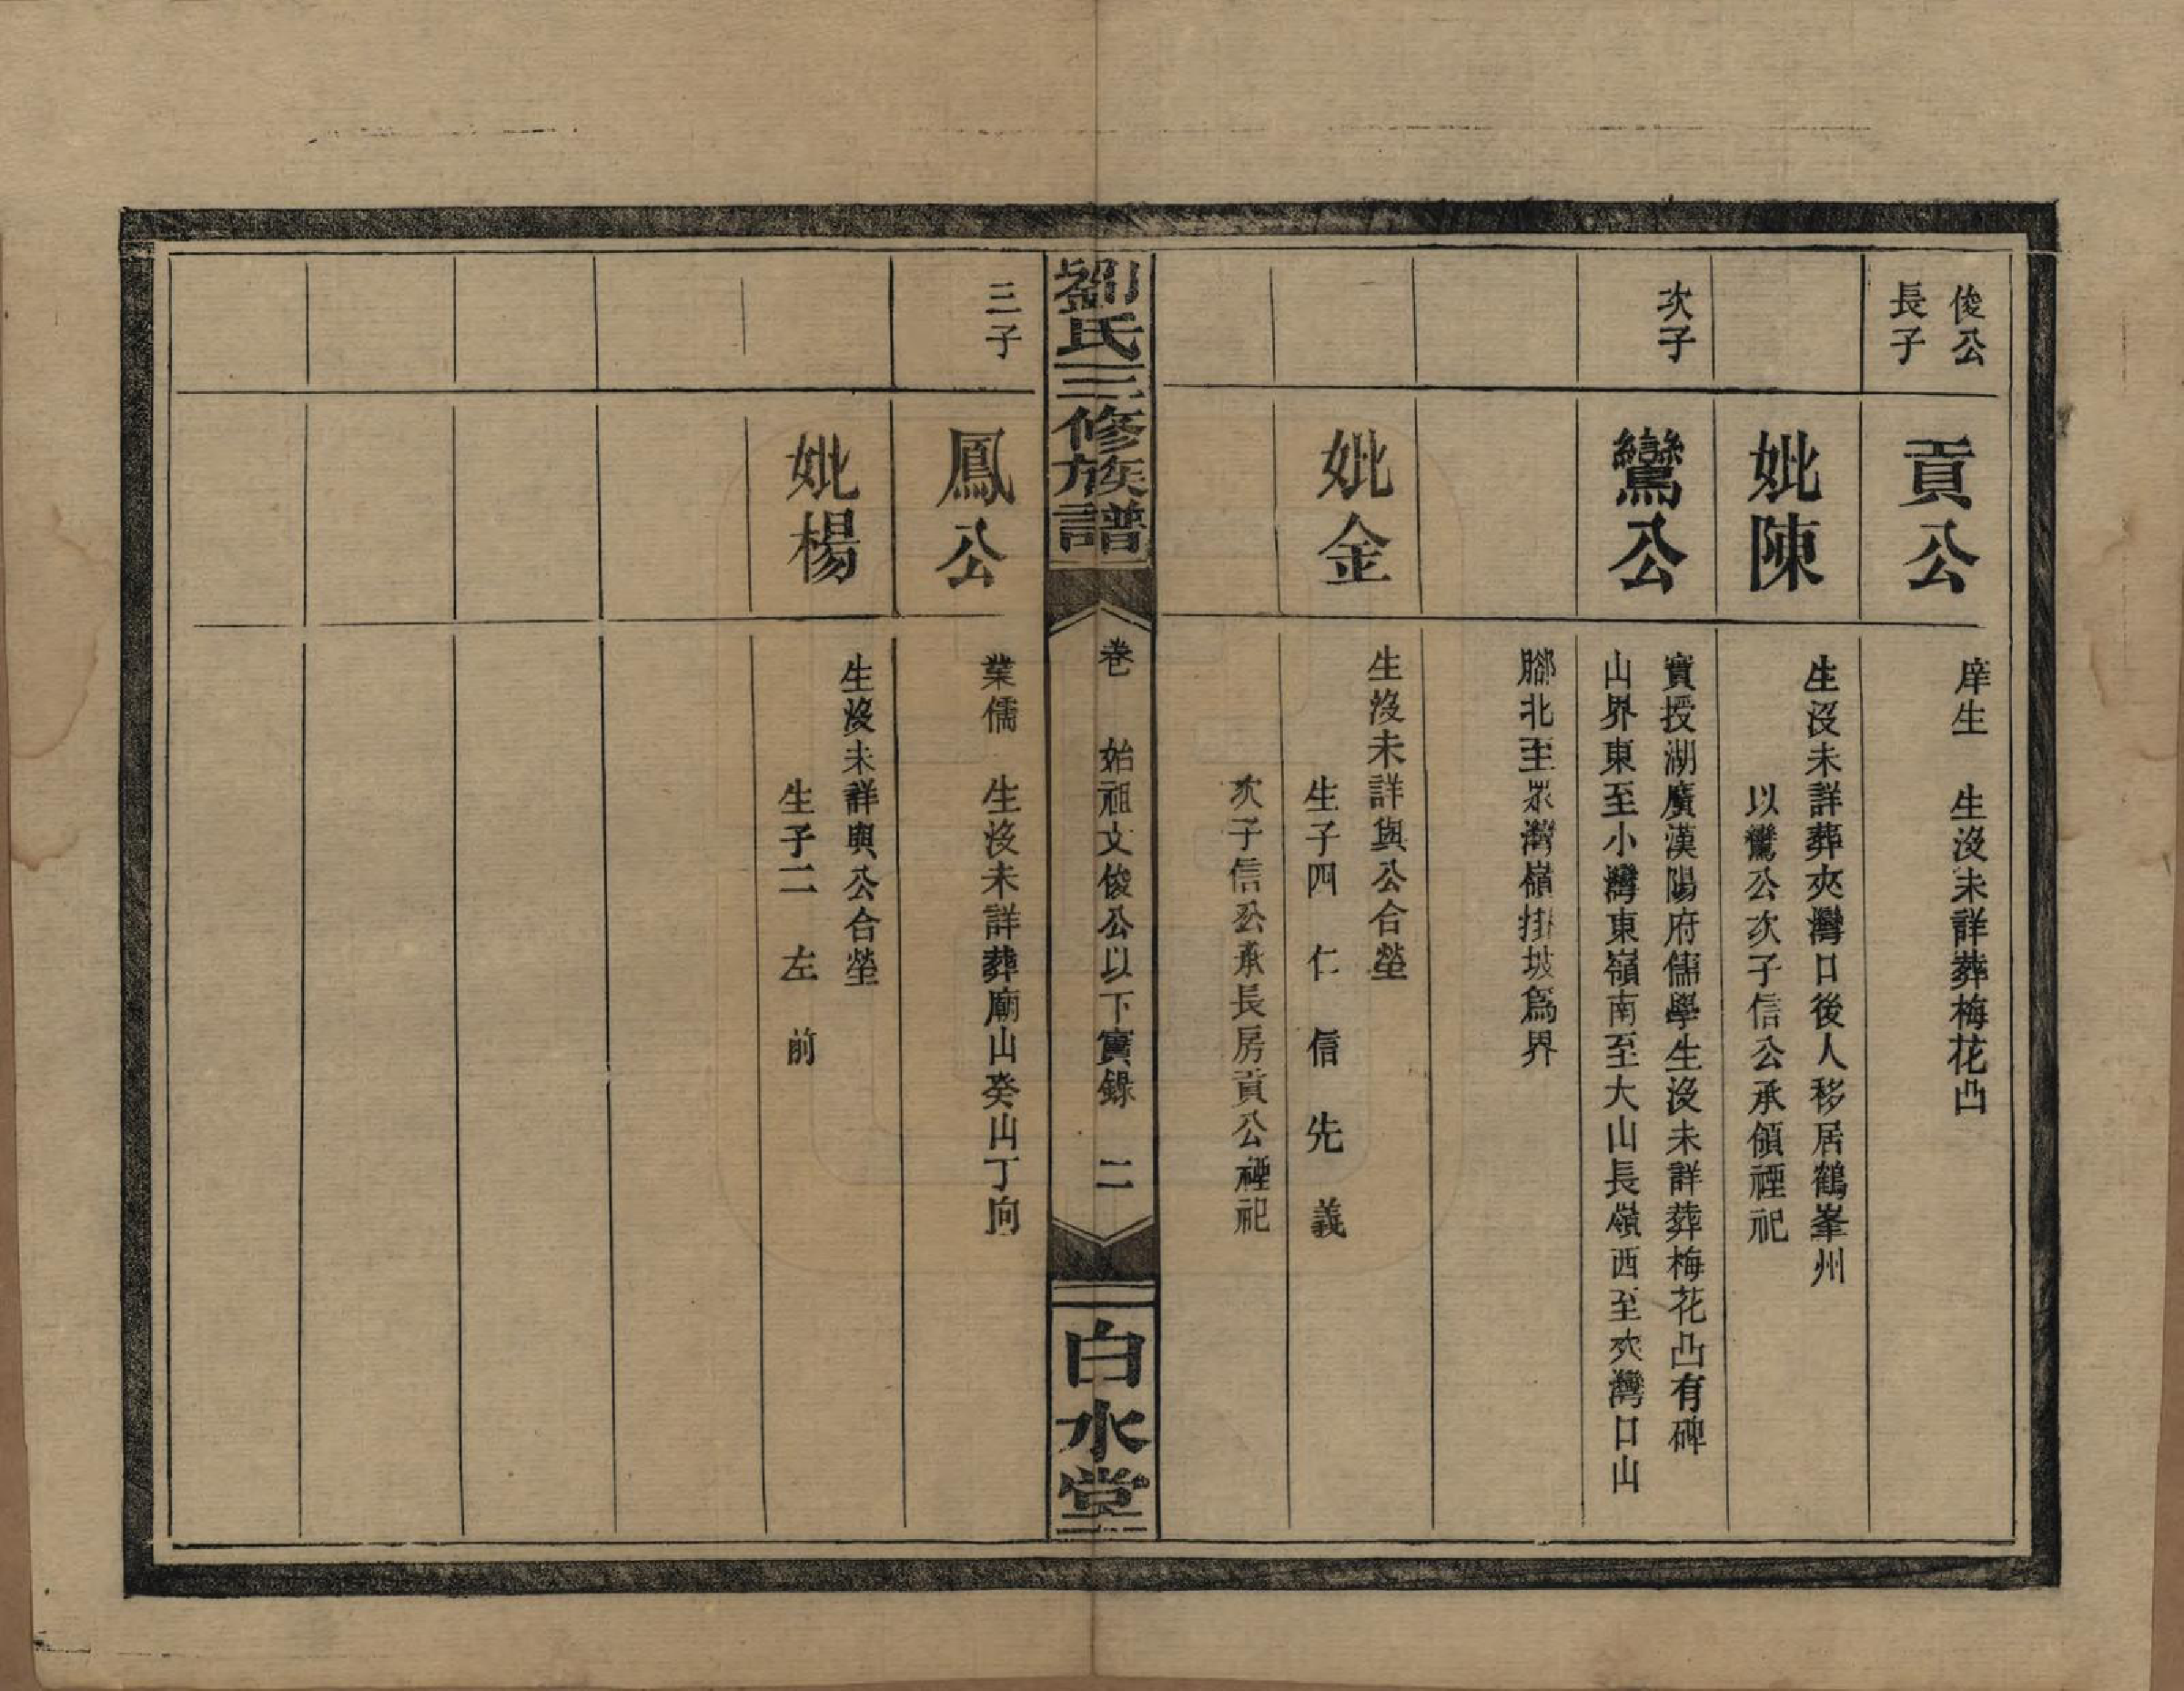 俊公
長子
貢公
庠生　生沒未詳葬梅花凸
妣陳
生沒未詳葬夾灣口後人移居鶴峯州
以鸞公次子信公承領禋祀
次子
鸞公
實授湖廣漢陽府儒學生沒未詳葬梅花凸有碑
山界東至小灣東嶺南至大山長嶺西至夾灣口山
腳北至眾灣嶺掛坡為界
妣金
生沒未詳與公合塋
生子四　仁　信　先　義
次子信公承長房貢公禋祀
劉氏三修族譜
卷　始祖文俊公以下實錄　二
白水堂
三子
鳳公
業儒　生沒未詳葬廟山癸山丁向
妣楊
生沒未詳與公合塋
生子二　左　前